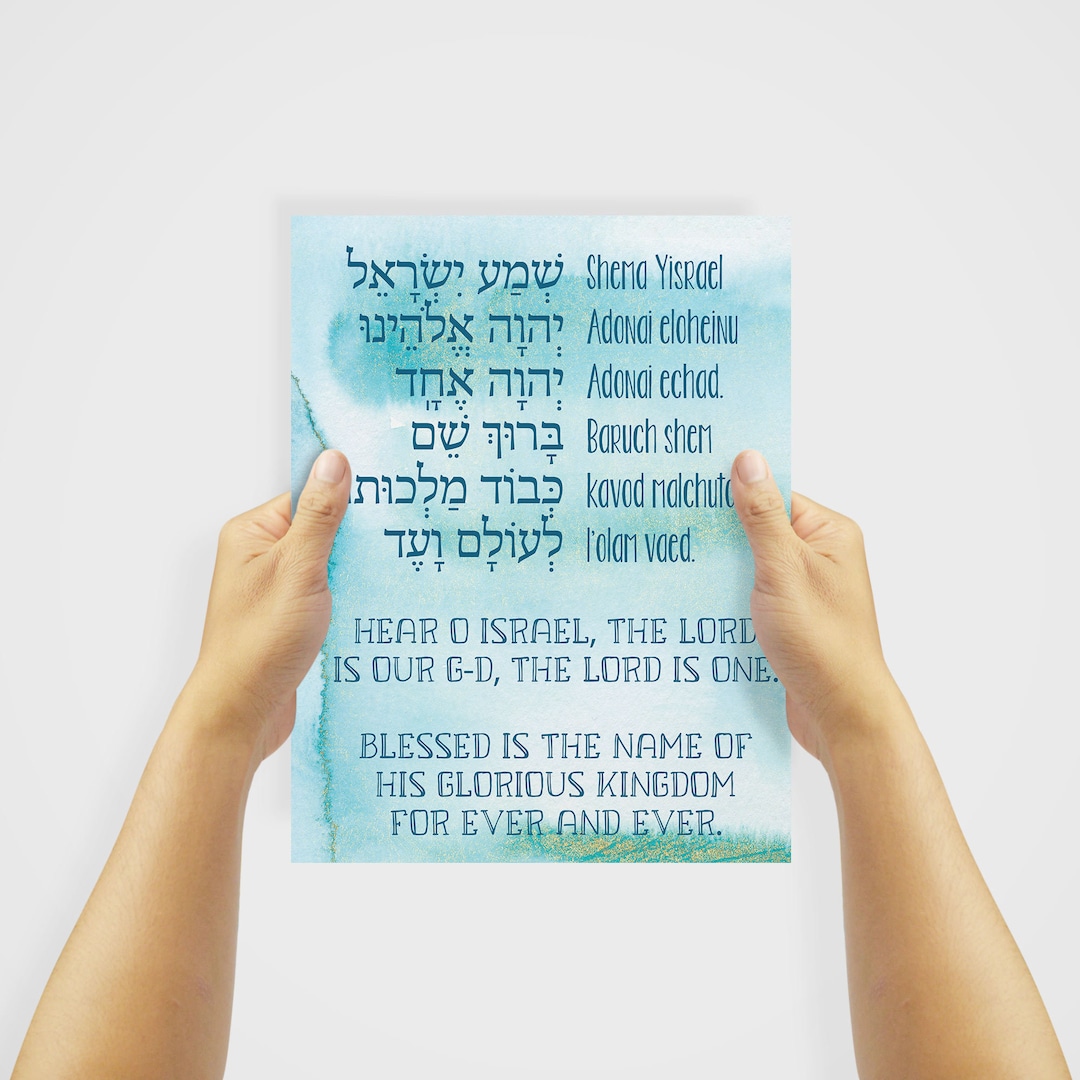 שְׁמַע יִשְׂרָאֵל
יְהוָה אֱלֹהֵינוּ
יְהוָה אֶחָד
בָּרוּךְ שֵׁם
כְּבוֹד מַלְכוּתוֹ
לְעוֹלָם וָעֶד
Shema Yisrael
Adonai eloheinu
Adonai echad.
Baruch shem
kavod malchuto
l'olam vaed.
HEAR O ISRAEL, THE LORD
IS OUR G-D, THE LORD IS ONE.
BLESSED IS THE NAME OF
HIS GLORIOUS KINGDOM
FOR EVER AND EVER.